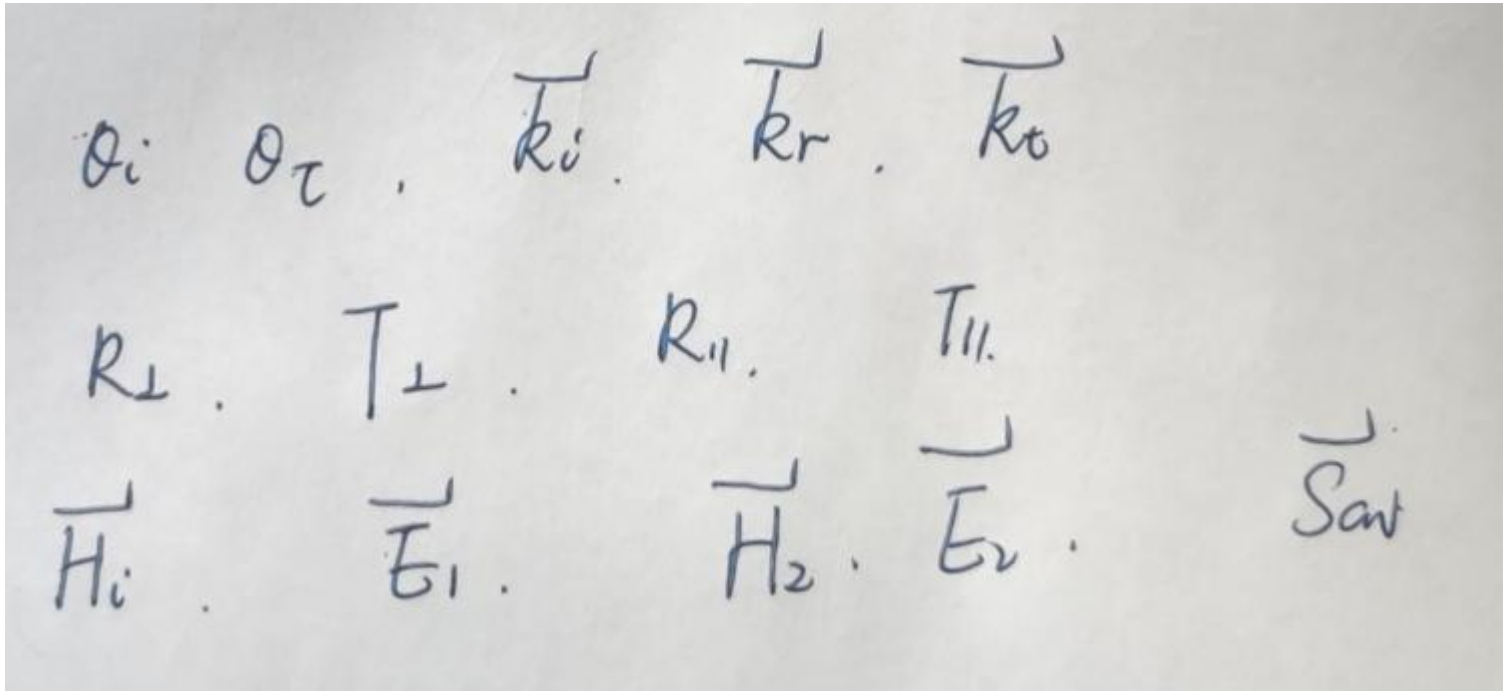 θi θτ . k⃗i . k⃗r . k⃗t
R⊥ . T⊥ . R∥ . T∥.
H⃗i . E⃗1 . H⃗2 . E⃗2 . S⃗av